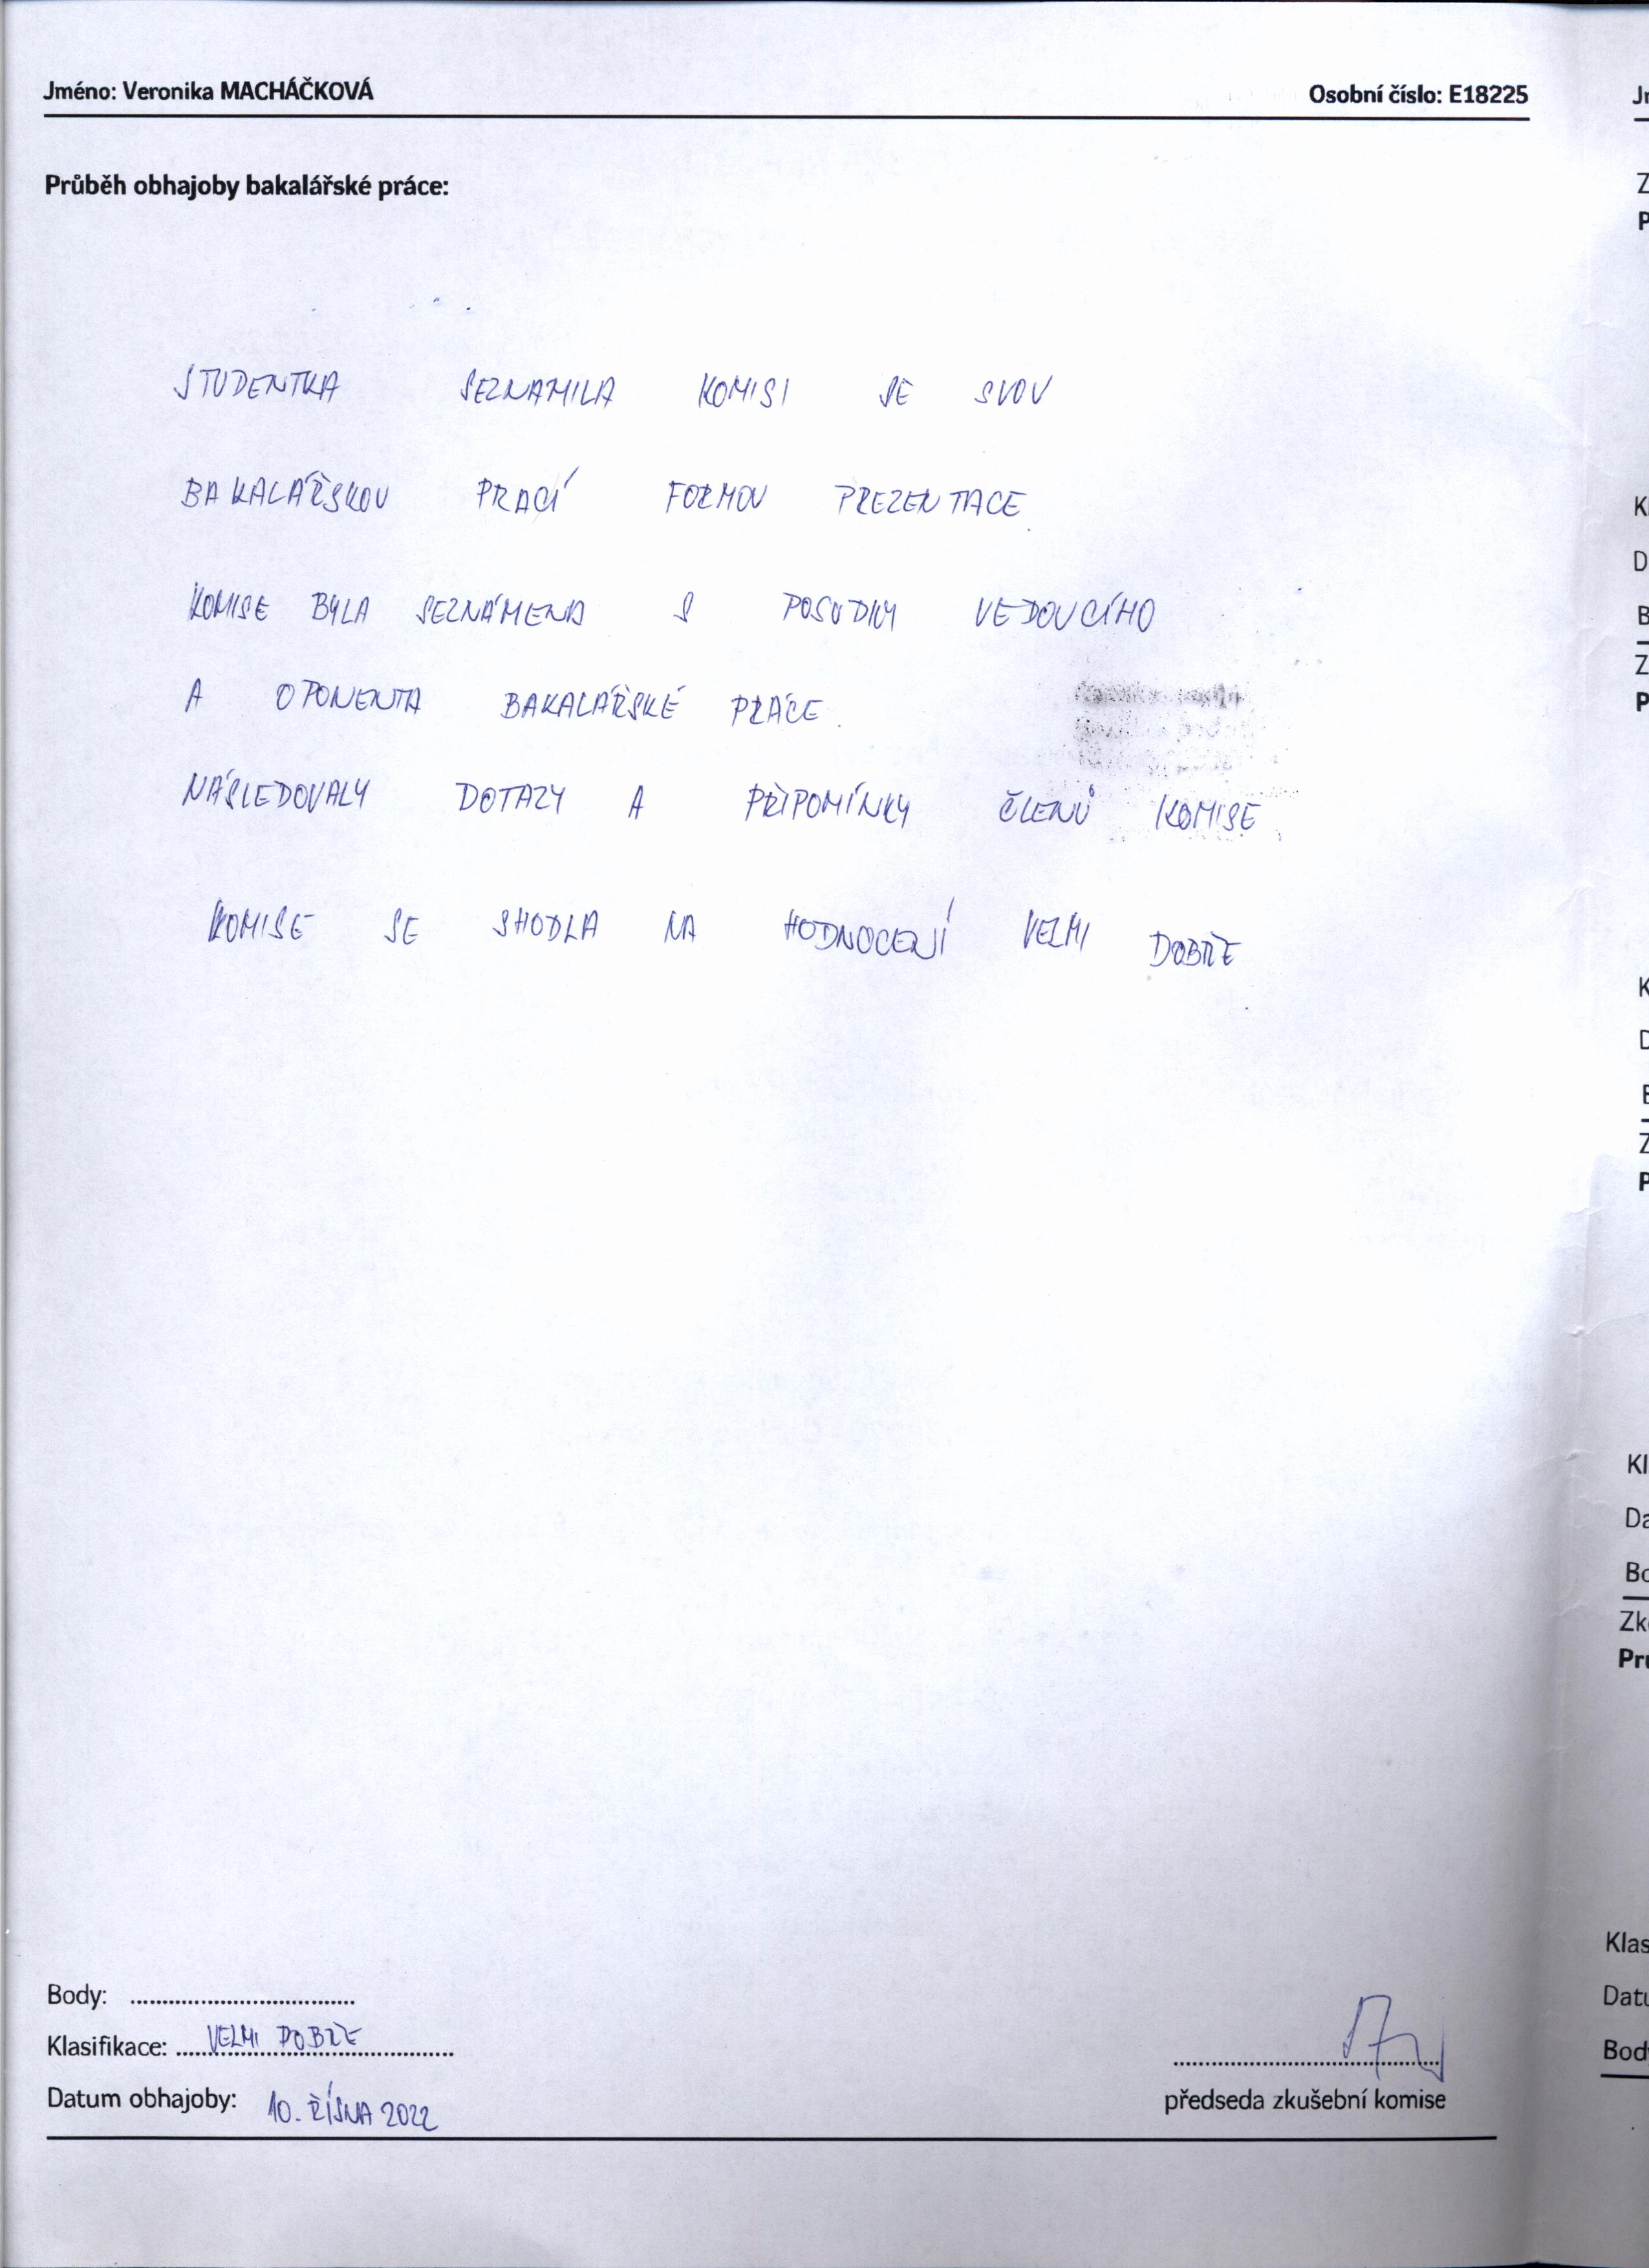 Jméno: Veronika MACHÁČKOVÁ Osobní číslo: E18225
Průběh obhajoby bakalářské práce:
STUDENTKA SEZNAMILA KOMISI SE SVOU
BAKALÁŘSKOU PRACÍ FORMOU PREZENTACE.
KOMISE BYLA SEZNÁMENA S POSUDKY VEDOUCÍHO
A OPONENTA BAKALÁŘSKÉ PRÁCE.
NÁSLEDOVALY DOTAZY A PŘIPOMÍNKY ČLENŮ KOMISE
KOMISE SE SHODLA NA HODNOCENÍ VELMI DOBŘE
Body: ....................................
Klasifikace: VELMI DOBŘE
Datum obhajoby: 10. ŘÍJNA 2022
předseda zkušební komise